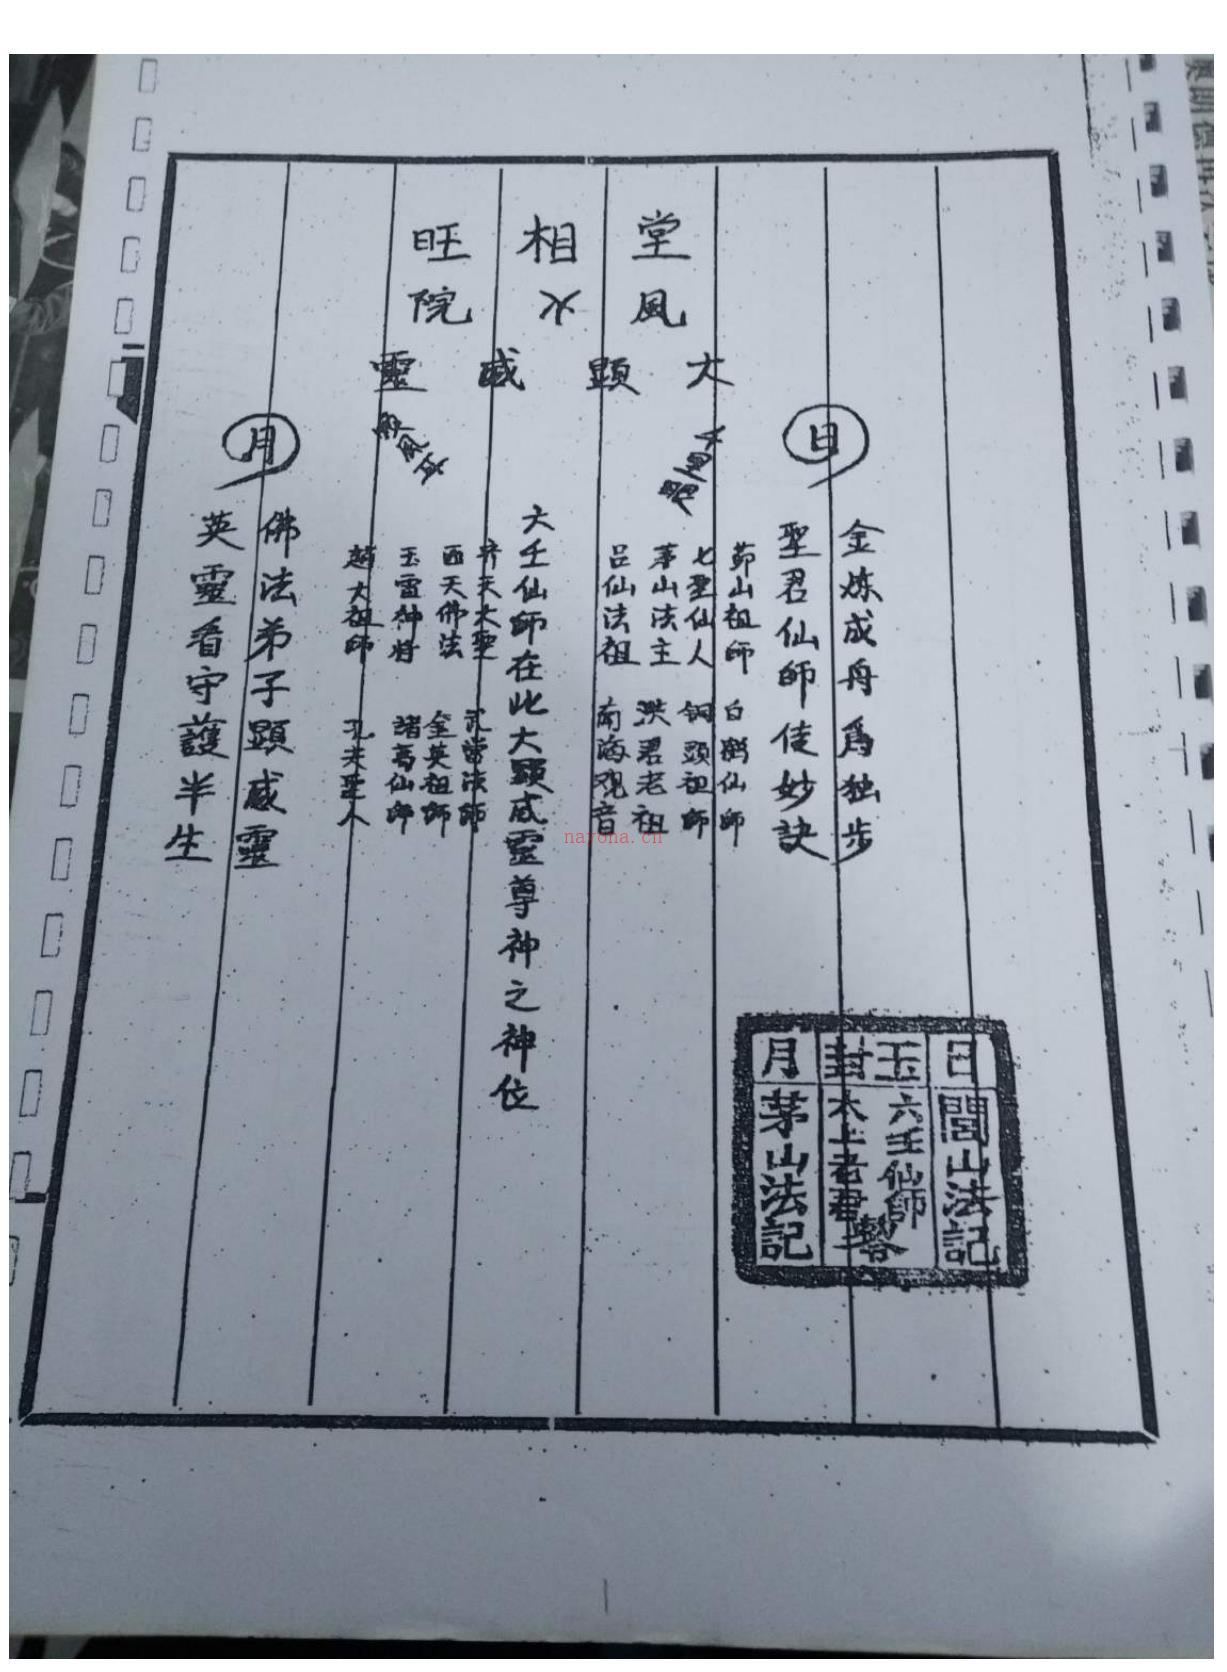 堂風
相
旺院
大顕威靈
日
月
金炼成舟為独步
聖君仙師佳妙訣
茆山祖師
白鶴仙師
七聖仙人
铜頭祖師
茅山法主
洪君老祖
吕仙法祖
南海观音
六壬仙師在此大顕威靈尊神之神位
齐天大聖
武當法師
西天佛法
金英祖師
玉雷神将
諸葛仙師
趙大祖師
孔夫聖人
佛法弟子顕威靈
英靈看守護半生
日 閭山法記
玉封
六壬仙師
太上老君
月 茅山法記
nayona.cn